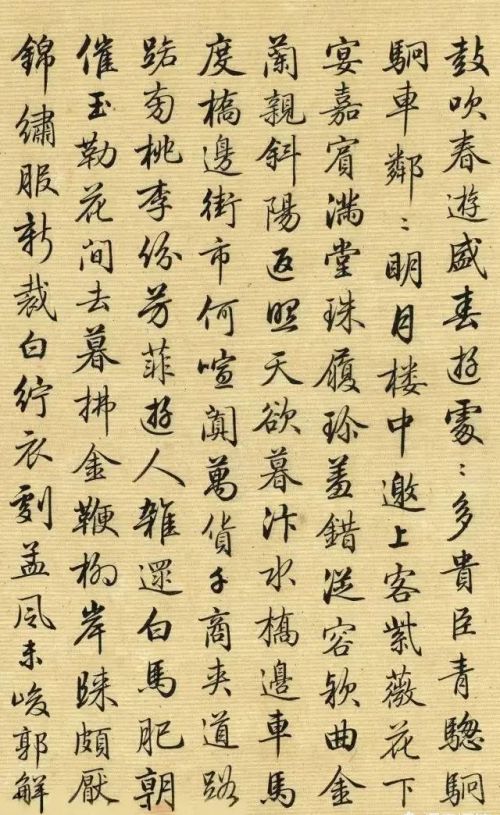 鼓吹春遊盛春遊處〻多貴臣青驄駉
駉車鄰〻明月楼中邀上客紫薇花下
宴嘉賓滿堂珠履珍羞錯從容欵曲金
蘭親斜陽返照天欲暮汴水橋邊車馬
度橋邊街市何喧闐萬貨千商夾道路
路旁桃李份芳菲遊人雜遝白馬肥朝
催玉勒花間去暮拂金鞭柳岸歸頗厭
錦繡服新裁白紵衣劇孟風未峻郭解